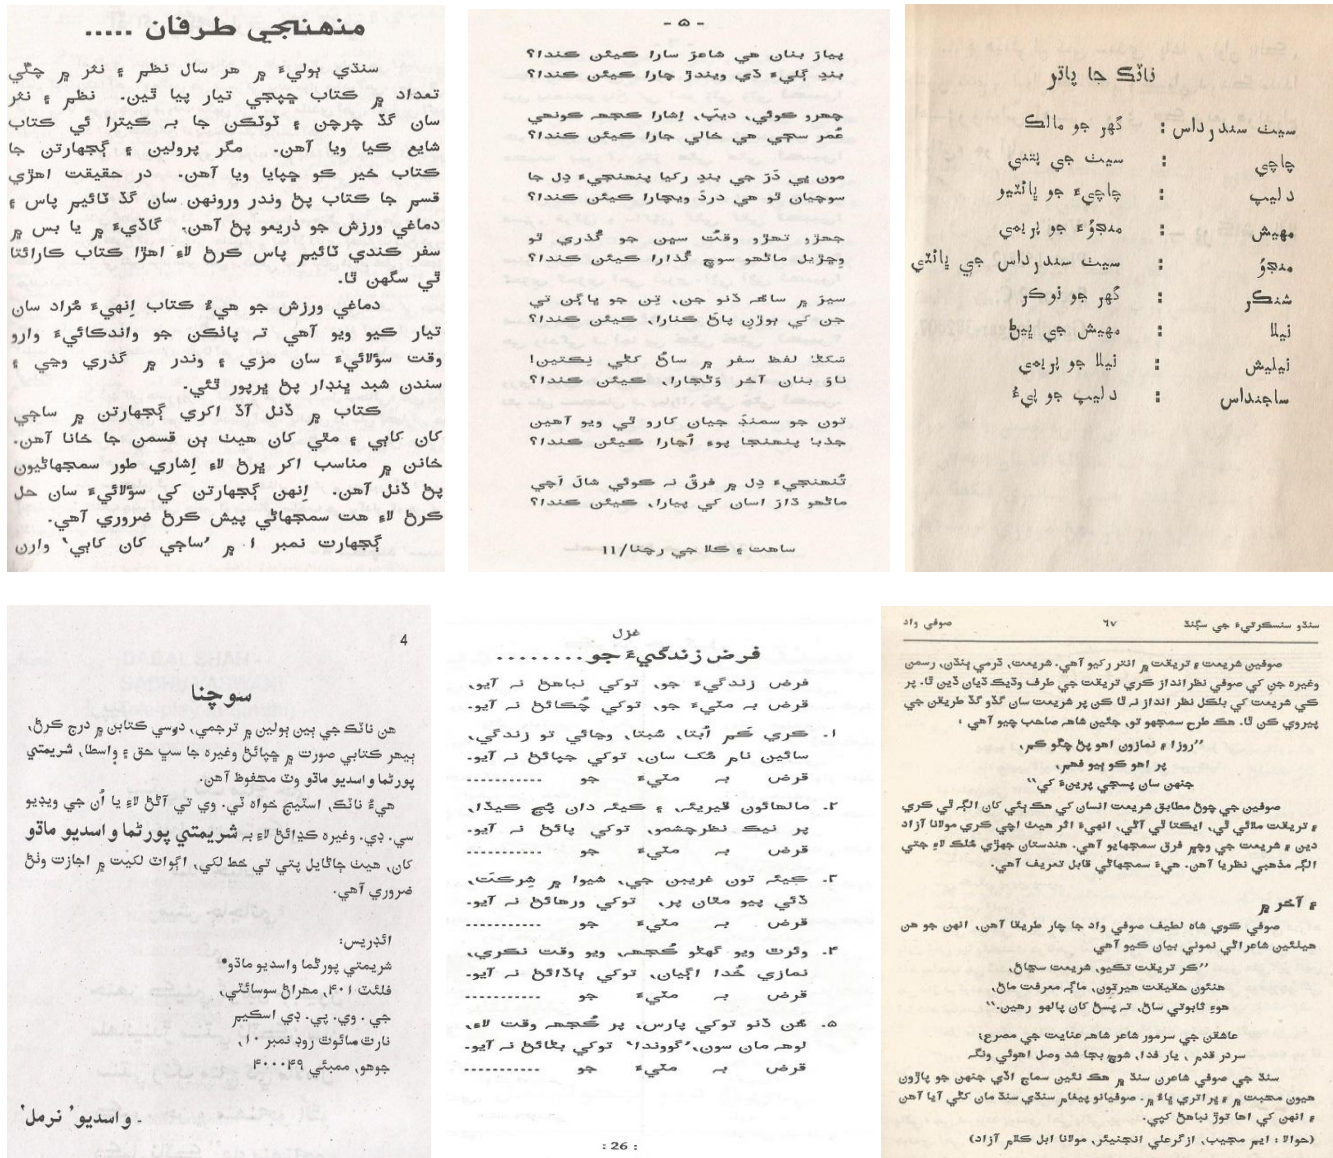 منهنجي طرفان .....
سنڌي ٻوليءَ ۾ هر سال نظم ۽ نثر ۾ چڱي
تعداد ۾ ڪتاب ڇپجي تيار پيا ٿين. نظم ۽ نثر
سان گڏ چرچن ۽ ٽوٽڪن جا به ڪيترا ئي ڪتاب
شايع ڪيا ويا آهن. مگر پرولين ۽ ڳجهارتن جا
ڪتاب خير ڪو ڇپايا ويا آهن. در حقيقت اهڙي
قسم جا ڪتاب پڻ وندر ورونهن سان گڏ ٽائيم پاس ۽
دماغي ورزش جو ذريعو پڻ آهن. گاڏيءَ ۾ يا بس ۾
سفر ڪندي ٽائيم پاس ڪرڻ لاءِ اهڙا ڪتاب ڪارائتا
ٿي سگهن ٿا.
دماغي ورزش جو هيءُ ڪتاب اِنهيءَ مُراد سان
تيار ڪيو ويو آهي ته پاٺڪن جو واندڪائيءَ وارو
وقت سؤلائيءَ سان مزي ۽ وندر ۾ گذري وڃي ۽
سندن شبد ڀنڊار پڻ ڀرپور ٿئي.
ڪتاب ۾ ڏنل آڏ اکري ڳجهارتن ۾ ساڄي
کان کاٻي ۽ مٿي کان هيٺ ٻن قسمن جا خانا آهن.
خانن ۾ مناسب اکر ڀرڻ لاءِ اِشاري طور سمجهاڻيون
پڻ ڏنل آهن. اِنهن ڳجهارتن کي سؤلائيءَ سان حل
ڪرڻ لاءِ هت سمجهاڻي پيش ڪرڻ ضروري آهي.
ڳجهارت نمبر ۱ ۾ 'ساڄي کان کاٻي' وارن
- ۵ -
پيارَ بنان هي شاعرَ سارا ڪيئن ڪندا؟
بندِ ڳليءَ ڏي ويندڙ چارا ڪيئن ڪندا؟
چهرو ڪوئي، ديپ، اِشارا ڪجهه ڪونهي
عُمر سڄي هي خالي جارا ڪيئن ڪندا؟
مون ئي دَرَ جي بند رکيا پنهنجيءَ دِل جا
سوچيان ٿو هي دردَ ويچارا ڪيئن ڪندا؟
جهڙو تهڙو وقتُ سڀن جو گُذري ٿو
وڇڙيل ماڻهو سوچ گُذارا ڪيئن ڪندا؟
سيرَ ۾ ساٿهه ڏنو جن، تِن جو ڀاڳن تي
جن کي ٻوڙن پاڻ ڪنارا، ڪيئن ڪندا؟
سَکڻا لفظ سفر ۾ ساڻُ کڻي نِڪتين!
ناوَ بنان آخر وَڻجارا، ڪيئن ڪندا؟
تون جو سمنڊَ جيان کارو ٿي ويو آهين
جذبا پنهنجا پوءِ اُڃارا ڪيئن ڪندا؟
تُنهنجيءَ دِل ۾ فرقُ نه ڪوئي شالَ اَچي
ماڻهو ڌارَ اسان کي پيارا، ڪيئن ڪندا؟
ساهت ۽ ڪلا جي رچنا/11
ناٽڪ جا پاتر
سيٺ سندرداس : گهر جو مالڪ
چاچي : سيٺ جي پتني
دليپ : چاچيءَ جو ڀائٽيو
مهيش : منجوُءَ جو پريمي
منجوُ : سيٺ سندرداس جي ڀائٽي
شنڪر : گهر جو نوڪر
نيلا : مهيش جي ڀيڻ
نيليش : نيلا جو پريمي
ساجنداس : دليپ جو پيءُ
4
سوچنا
هن ناٽڪ جي ٻين ٻولين ۾ ترجمي، درسي ڪتابن ۾ درج ڪرڻ،
ٻيهر ڪتابي صورت ۾ ڇپائڻ وغيره جا سڀ حق ۽ واسطا، شريمتي
پورڻما واسديو ماڌو وٽ محفوظ آهن.
هيءُ ناٽڪ، اسٽيج خواه ٽي. وي تي آڻڻ لاءِ يا اُن جي ويڊيو
سي. ڊي. وغيره ڪڍائڻ لاءِ به شريمتي پورڻما واسديو ماڌو
کان، هيٺ ڄاڻايل پتي تي خط لکي، اڳواٽ لکيت ۾ اجازت وٺڻ
ضروري آهي.
ائڊريس:
شريمتي پورڻما واسديو ماڌو*
فلئٽ ۴۰۱، مهراڻ سوسائٽي،
جي . وي. پي. ڊي اسڪيم
نارٿ سائوٿ روڊ نمبر ۱۰،
جوهو، ممبئي ۴۰۰۰۴۹
- واسديو 'نرمل'
غزل
قرض زندگيءَ جو........
قرض زندگيءَ جو، توکي نباهڻ نه آيو،
قرض به مٽيءَ جو، توکي چُڪائڻ نه آيو.
۱. ڪري ڪَم اُبتا، سُبتا، وڃائي تو زندگي،
سائين نام سُک سان، توکي جپائڻ نه آيو.
قرض به مٽيءَ جو ...........
۲. مالهائون ڦيريئه، ۽ ڪيئه دان پُڃ ڪيڏا،
پر نيڪ نظرچشمو، توکي پائڻ نه آيو.
قرض به مٽيءَ جو ...........
۳. جيئه تون غريبن جي، شيوا ۾ شرڪَت،
ڏئي پيو مٿان پر، توکي ورهائڻ نه آيو.
قرض به مٽيءَ جو ...........
۴. وئرٿ ويو گهڻو ڪُجهه، ويو وقت نڪري،
نمازي خُدا اڳيان، توکي ٻاڏائڻ نه آيو.
قرض به مٽيءَ جو ...........
۵. هُن ڏنو توکي پارس، پر ڪُجهه وقت لاءِ،
لوهه مان سون، 'گووندا' توکي بڻائڻ نه آيو.
قرض به مٽيءَ جو ...........
: 26 :
سنڌو سنسڪرتيءَ جي سڳنڌ ٦٧ صوفي واد
صوفين شريعت ۽ تريقت ۾ انتر رکيو آهي. شريعت، ڌرمي ٻنڌن، رسمن
وغيره جن کي صوفي نظر انداز ڪري تريقت جي طرف وڌيڪ ڌيان ڏين ٿا. پر
ڪي شريعت کي بلڪل نظر انداز نه ٿا ڪن پر شريعت سان گڏوگڏ طريقن جي
پيروي ڪن ٿا. هڪ طرح سمجهو تو، جيئن شاهه صاحب چيو آهي :
"روزا ۽ نمازون اهو پڻ چڱو ڪم،
پر اهو ڪو ٻيو فهم،
جنهن سان پسجي پرينءَ کي"
صوفين جي چوڻ مطابق شريعت انسان کي هڪ ٻئي کان الڳ ٿي ڪري
۽ تريقت ملائي ٿي، ايڪتا ٿي آڻي، انهيءَ اثر هيٺ اچي ڪري مولانا آزاد
دين ۽ شريعت جي وچ۾ فرق سمجهايو آهي. هندستان جهڙي مُلڪ لاءِ جتي
الڳ مذهبي نظريا آهن. هيءَ سمجهاڻي قابل تعريف آهي.
۽ آخر ۾
صوفي ڪوي شاه لطيف صوفي واد جا چار طريقا آهن، انهن جو هن
هيئين شاعراڻي نموني بيان ڪيو آهي
"ڪر تريقت تڪيو، شريعت سڃاڻ،
هنئون حقيقت هيرتون، ماڳ معرفت ماڻ،
هوءِ ثابوتي ساڻ، ته پسڻ کان پالهو رهين."
عاشقن جي سرمور شاعر شاهه عنايت جي مصرع؛
سردر قدم ، يار فدا، شوڇ بجا شد وصل اهوئي ونگه
سنڌ جي صوفي شاعرن سنڌ ۾ هڪ نئين سماج اڏي جنهن جو پاڙون
هيون محبت ۾ ۽ ڀراتري ڀاءُ ۾. صوفيانو پيغام سنڌي سنڌ مان کڻي آيا آهن
۽ انهن کي اها توڙ نباهڻ کپي.
(حوالا : ايم مجيب، ازگرعلي انجنيئر، مولانا ابل ڪلام آزاد)